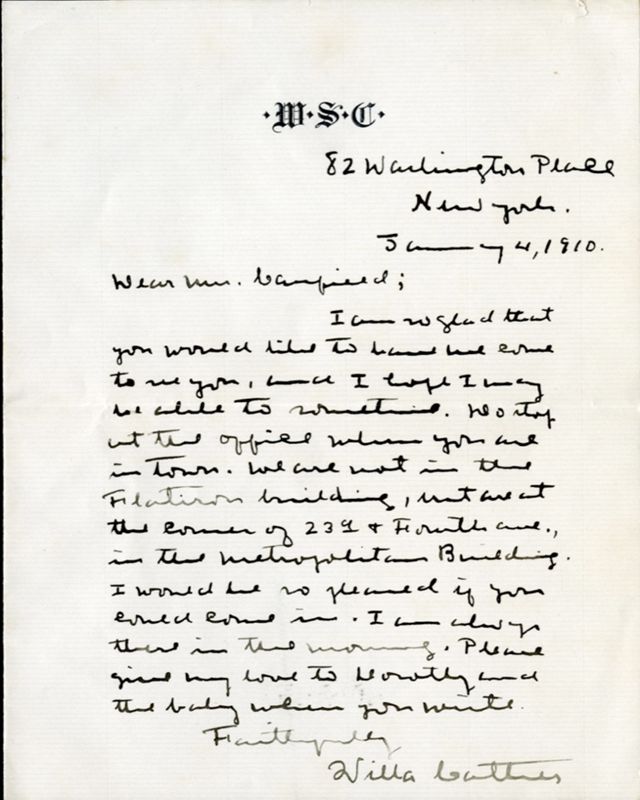 ·W·S·C·
82 Washington Place
New York.
January 4, 1910.
Dear Mrs. Canfield;
I am so glad that
you would like to have me come
to see you, and I hope I may
be able to sometime. Do stop
at the office when you are
in town. We are not in the
Flatiron building, but are at
the corner of 23d & Fourth ave.,
in the Metropolitan Building.
I would be so pleased if you
could come in. I am always
there in the morning. Please
give my love to Dorothy and
the baby when you write.
Faithfully
Willa Cather